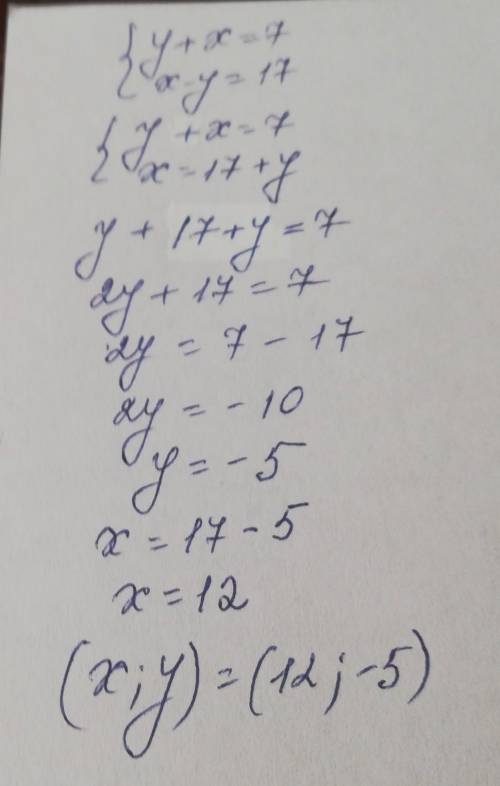 { y + x = 7
x - y = 17
{ y + x = 7
x = 17 + y
y + 17 + y = 7
2y + 17 = 7
2y = 7 - 17
2y = - 10
y = - 5
x = 17 - 5
x = 12
(x; y) = (12; -5)